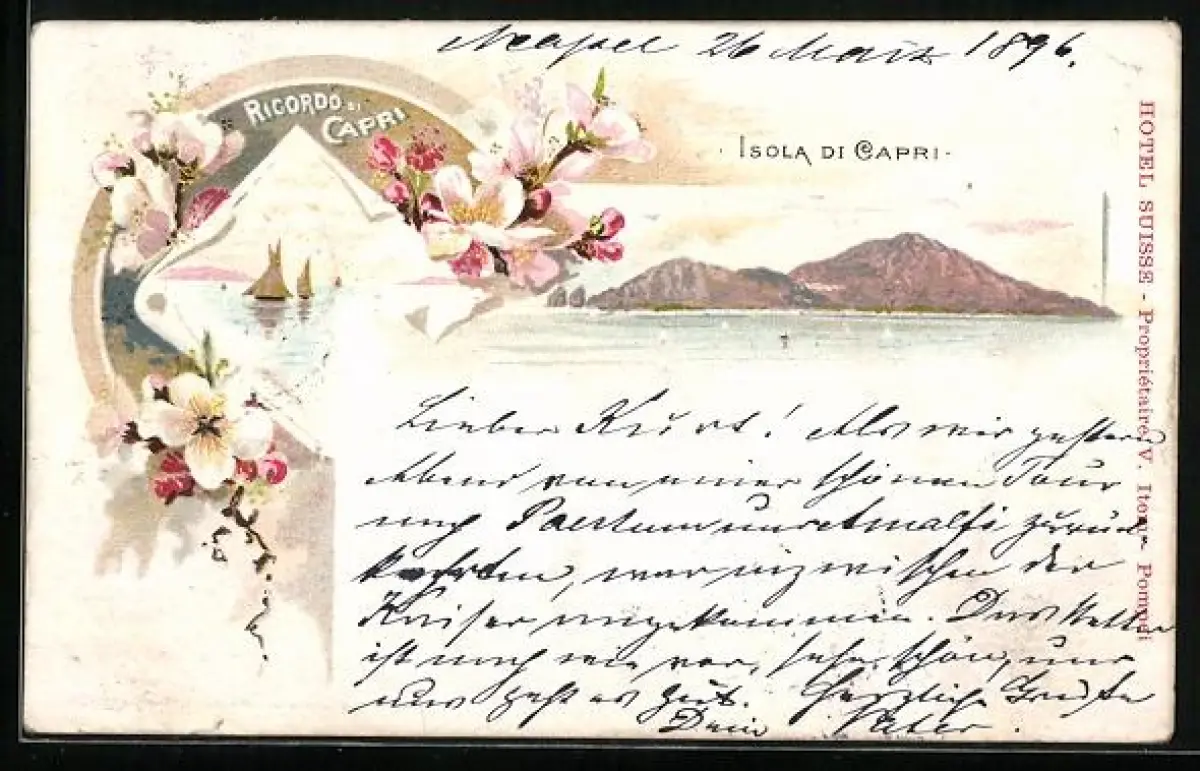 Neapel 26 März 1896.
RICORDO DI CAPRI
ISOLA DI CAPRI
HOTEL SUISSE - Propriétaire V. Item - Pompei
Lieber Kurt! Als wir gestern
Abend von einer schönen Tour
nach Paestum und Amalfi zurück
kehrten, war inzwischen der
Kaiser angekommen. Das Wetter
ist nach wie vor, sehr schön, und
uns geht es gut. Herzliche Grüße
Dein Vater.